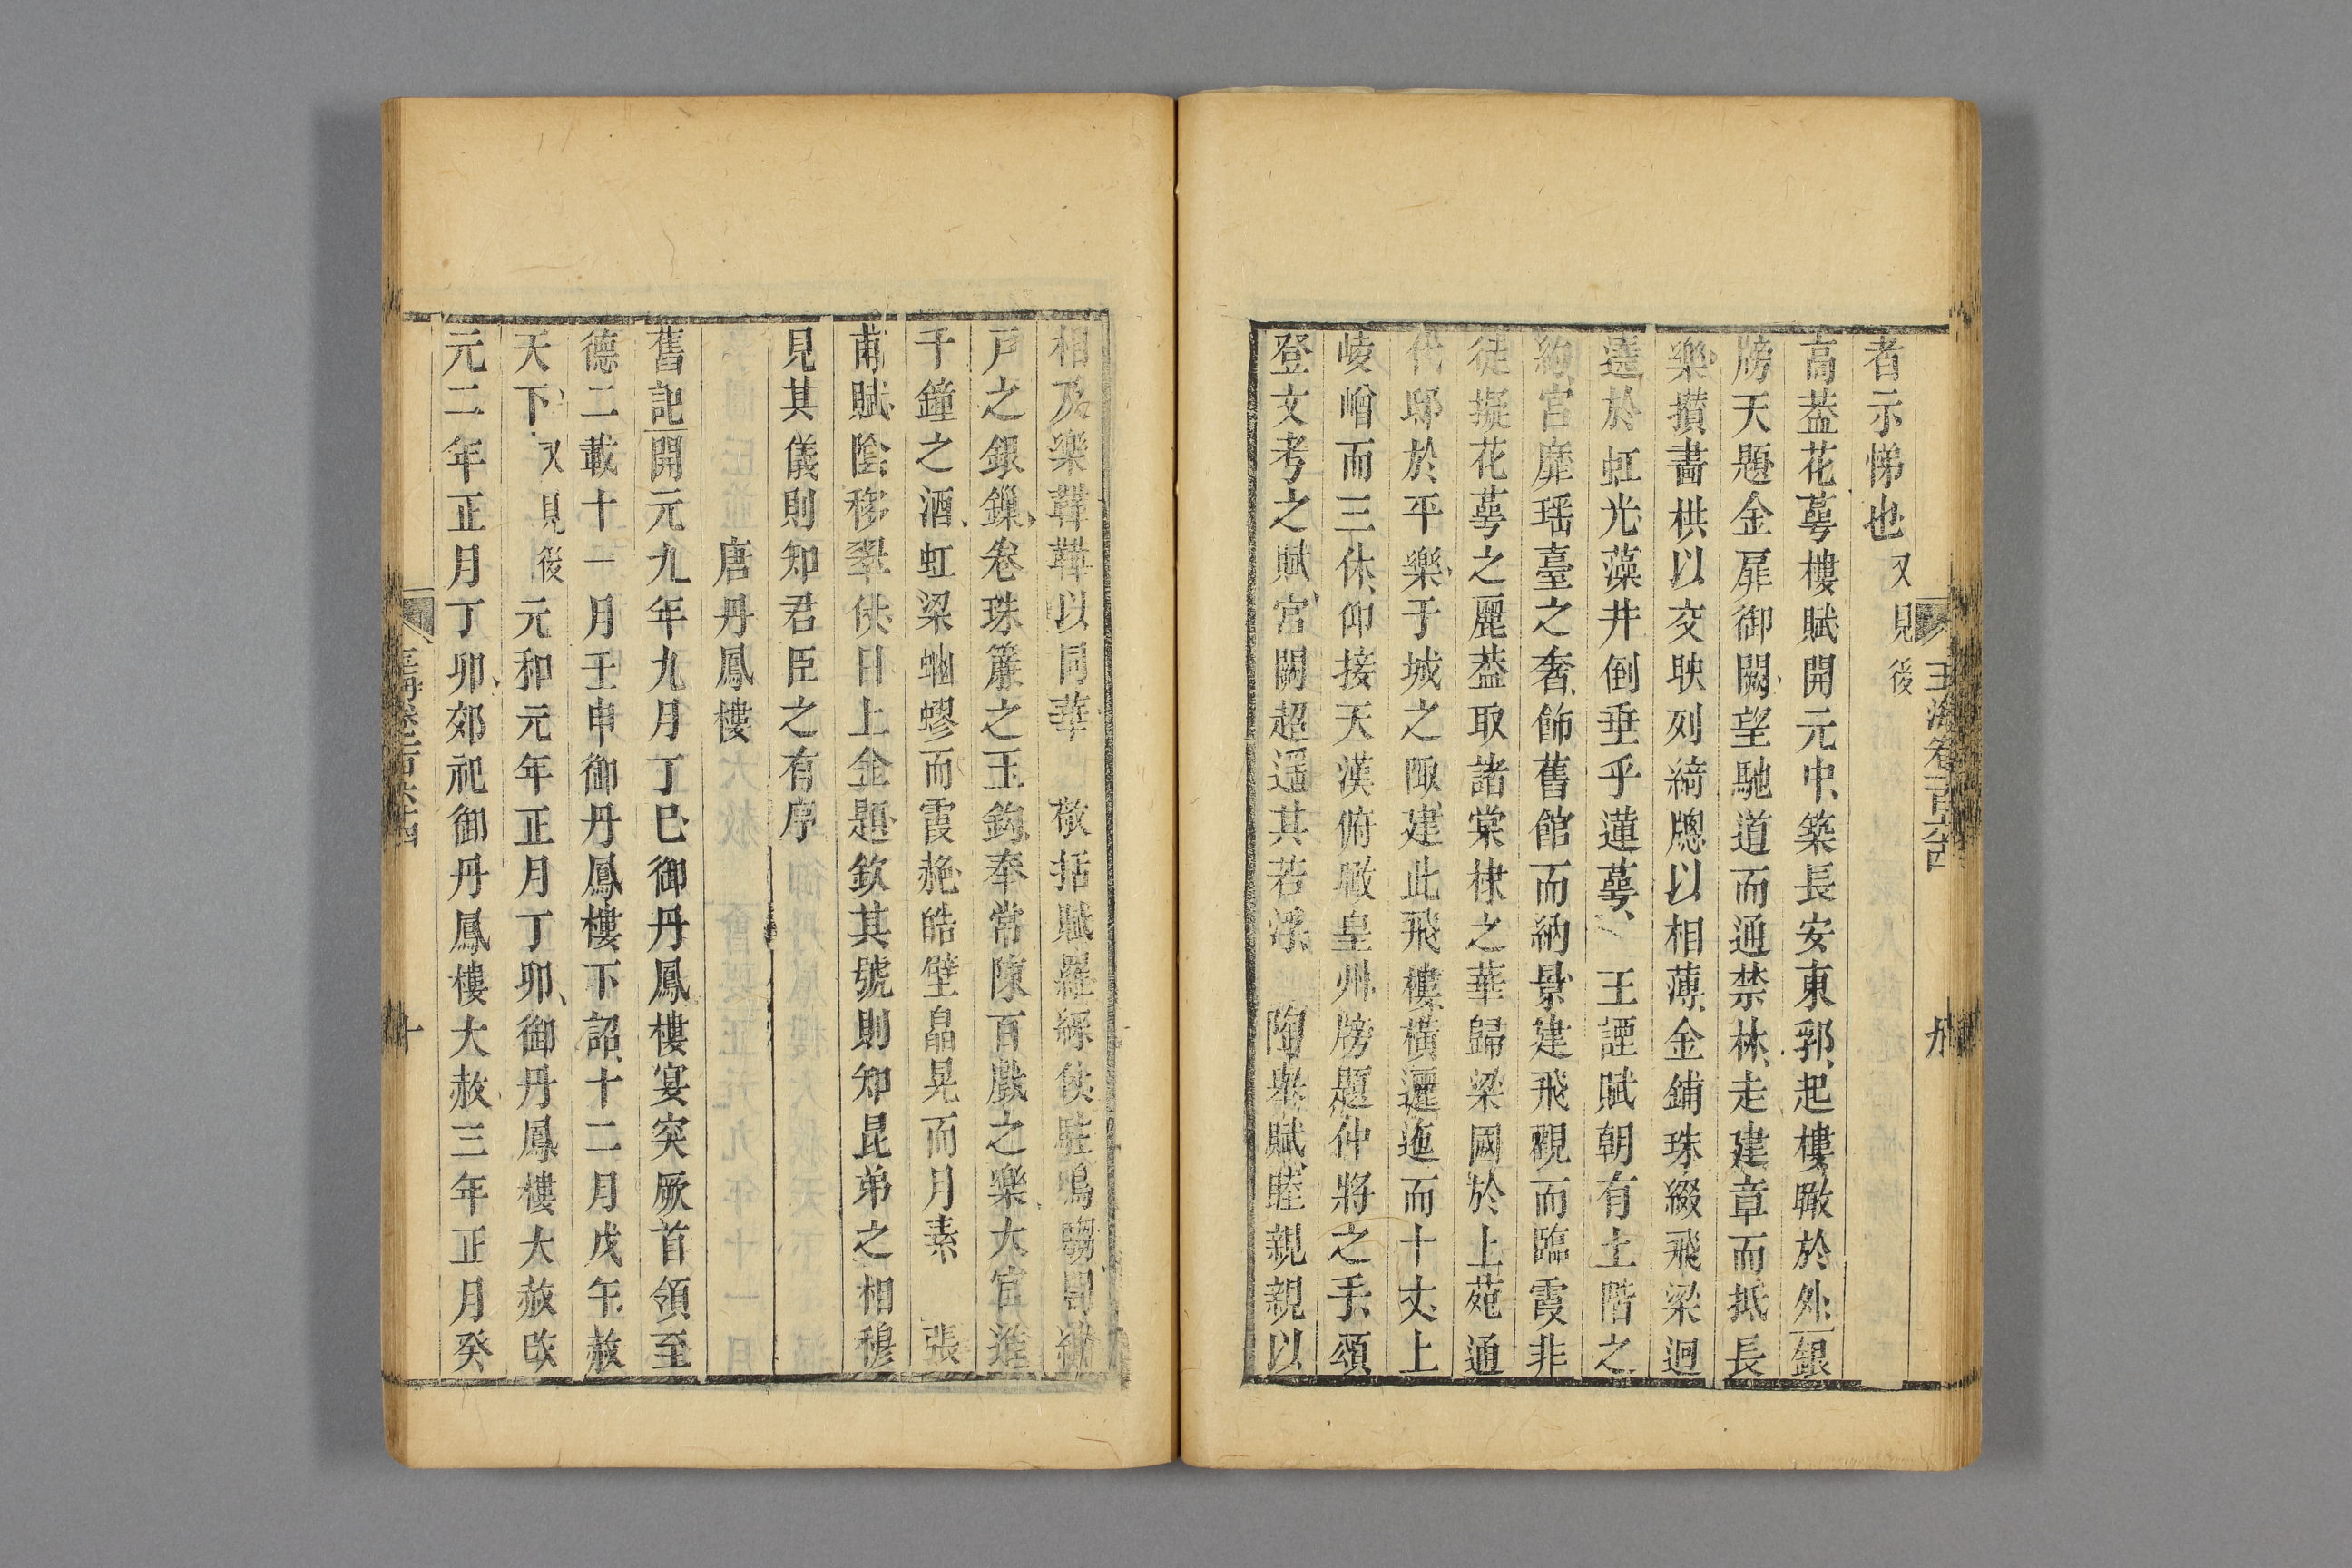 玉海卷一百六十四
九
者示悌也又見後
高蓋花萼樓賦開元中築長安東郭起樓瞰於外銀
牓天題金扉御闕望馳道而通禁林走建章而抵長
樂攢畵栱以交映列綺牕以相薄金鋪珠綴飛梁迴
遶於虹光藻井倒垂乎蓮萼 王諲賦朝有土階之
約宮靡瑤臺之奢飾舊館而納景建飛觀而臨霞非
徒擬花萼之麗蓋取諸棠棣之華歸梁國於上苑通
代邸於平樂于城之陬建此飛樓橫邐迤而十丈上
崚嶒而三休仰接天漢俯瞰皇州牓題仲將之手頌
登文考之賦宮闕超遥其若浮 陶舉賦睦親親以
相及樂韡韡以同華 敬括賦羅綵仗駐鳴騶周
戸之銀鏁卷珠簾之玉鉤奉常陳百戲之樂大官進
千鐘之酒虹梁蚴蟉而霞赩皓壁皛晃而月素 張
甫賦陰移翠仗日上金題欽其號則知昆弟之相穆
見其儀則知君臣之有序
唐丹鳳樓
舊記開元九年九月丁巳御丹鳳樓宴突厥首領至
德二載十一月壬申御丹鳳樓下詔十二月戊午赦
天下又見後元和元年正月丁卯御丹鳳樓大赦改
元二年正月丁卯郊祀御丹鳳樓大赦三年正月癸
玉海卷一百六十四
十